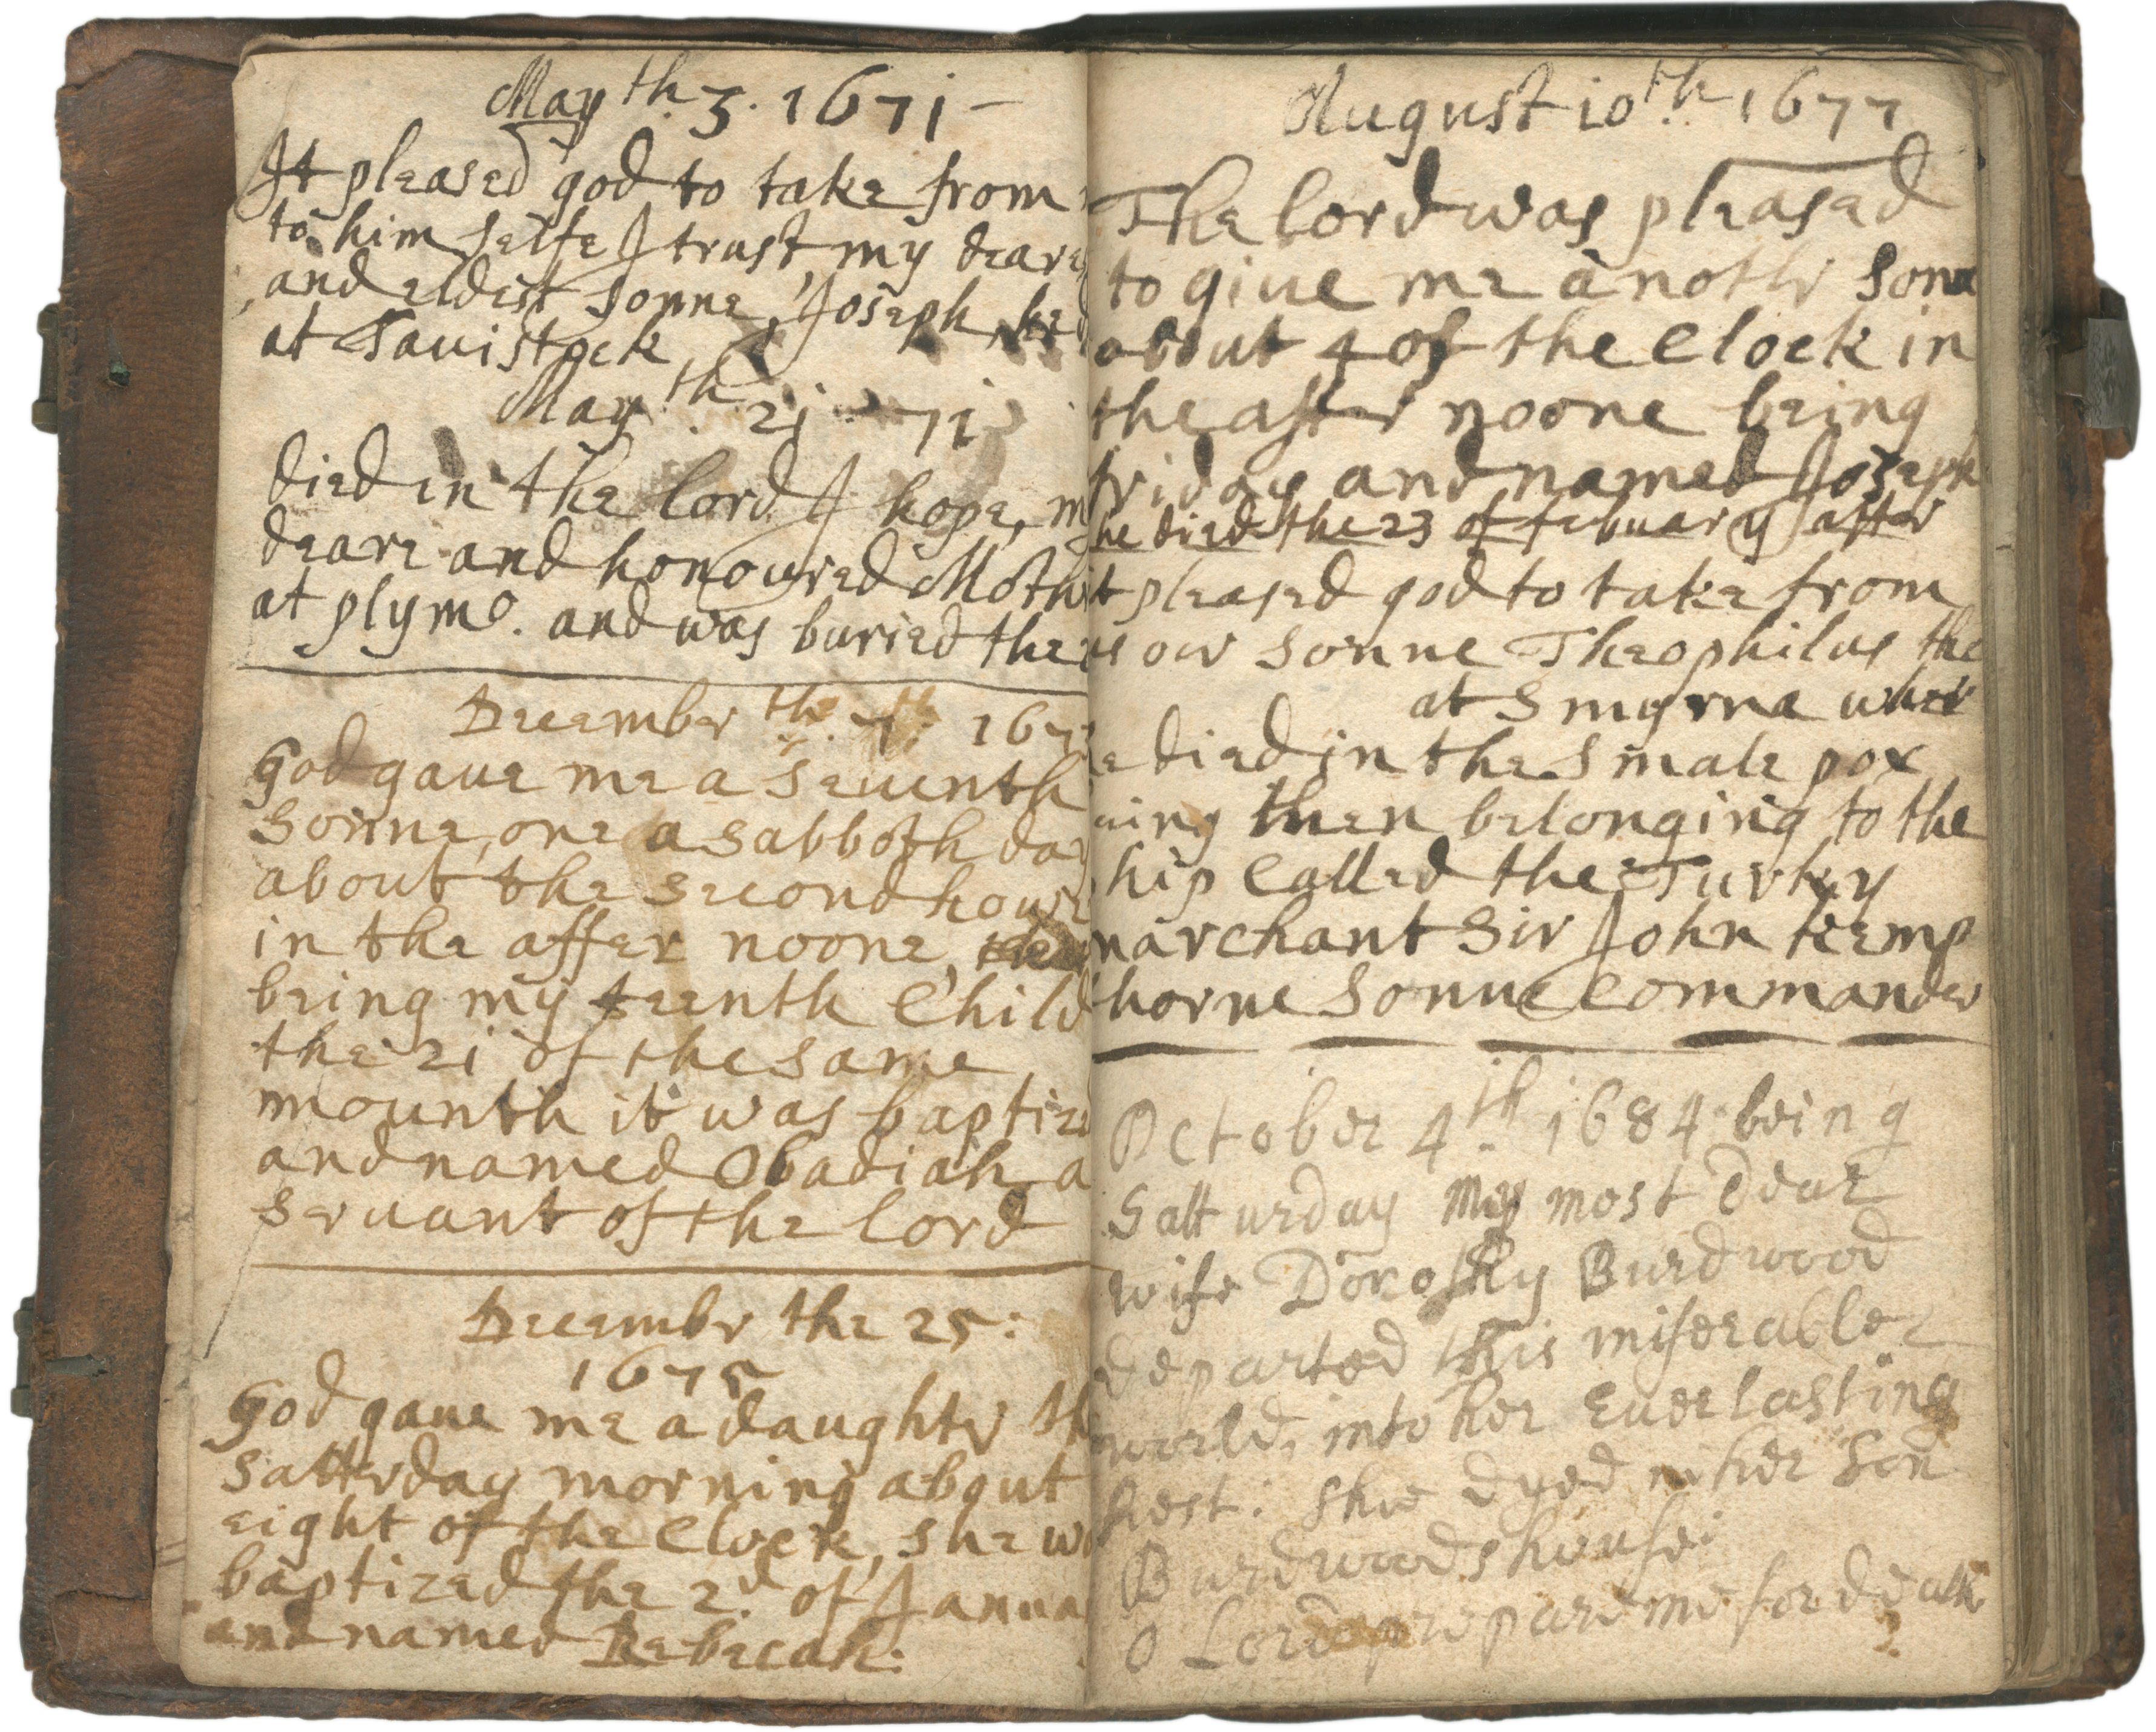 May th. 3. 1671 -
It pleased god to take from
to him selfe I trust, my deare
and eldest sonne, Joseph, he
at Tauistock
May th. 21 71
died in the lord I hope, my
deare and honoured Mothr
at plymo. and was buried there
December th. 7th: 167
God gaue me a seuenth
sonne, one a sabboth day
about the second houre
in the affter noone,
being my teenth Child
the 21 of the same
mounth it was baptize
and named Obadiah a
seruant of the lord
Decembr the 25:
1675
God gaue me a daughtr th
satterday morning about
eight of the Clock, she w
baptized the 2d. of Janua
and named Rebecah:
August 10th. 1677
The lord was pleased
to giue me a nothr sonn
about 4 of the Clock in
the after noone being
friday and named Joseph
he died the 23 of febuary after
it pleased god to take from
us our sonne Theophilus the
at Smyrna wher
e died in the smale pox
uing then belonging to the
hip Called the Turkey
marchant Sir John kemp
thorne sonne Commander
October 4th. 1684 being
Satturday my most Dear
wife Dorothy Burdwood
departed this miserable
world, into her Euerlasting
Rest: shee dyed in her Son
Burdwoods house:
O Lord prepare me for death